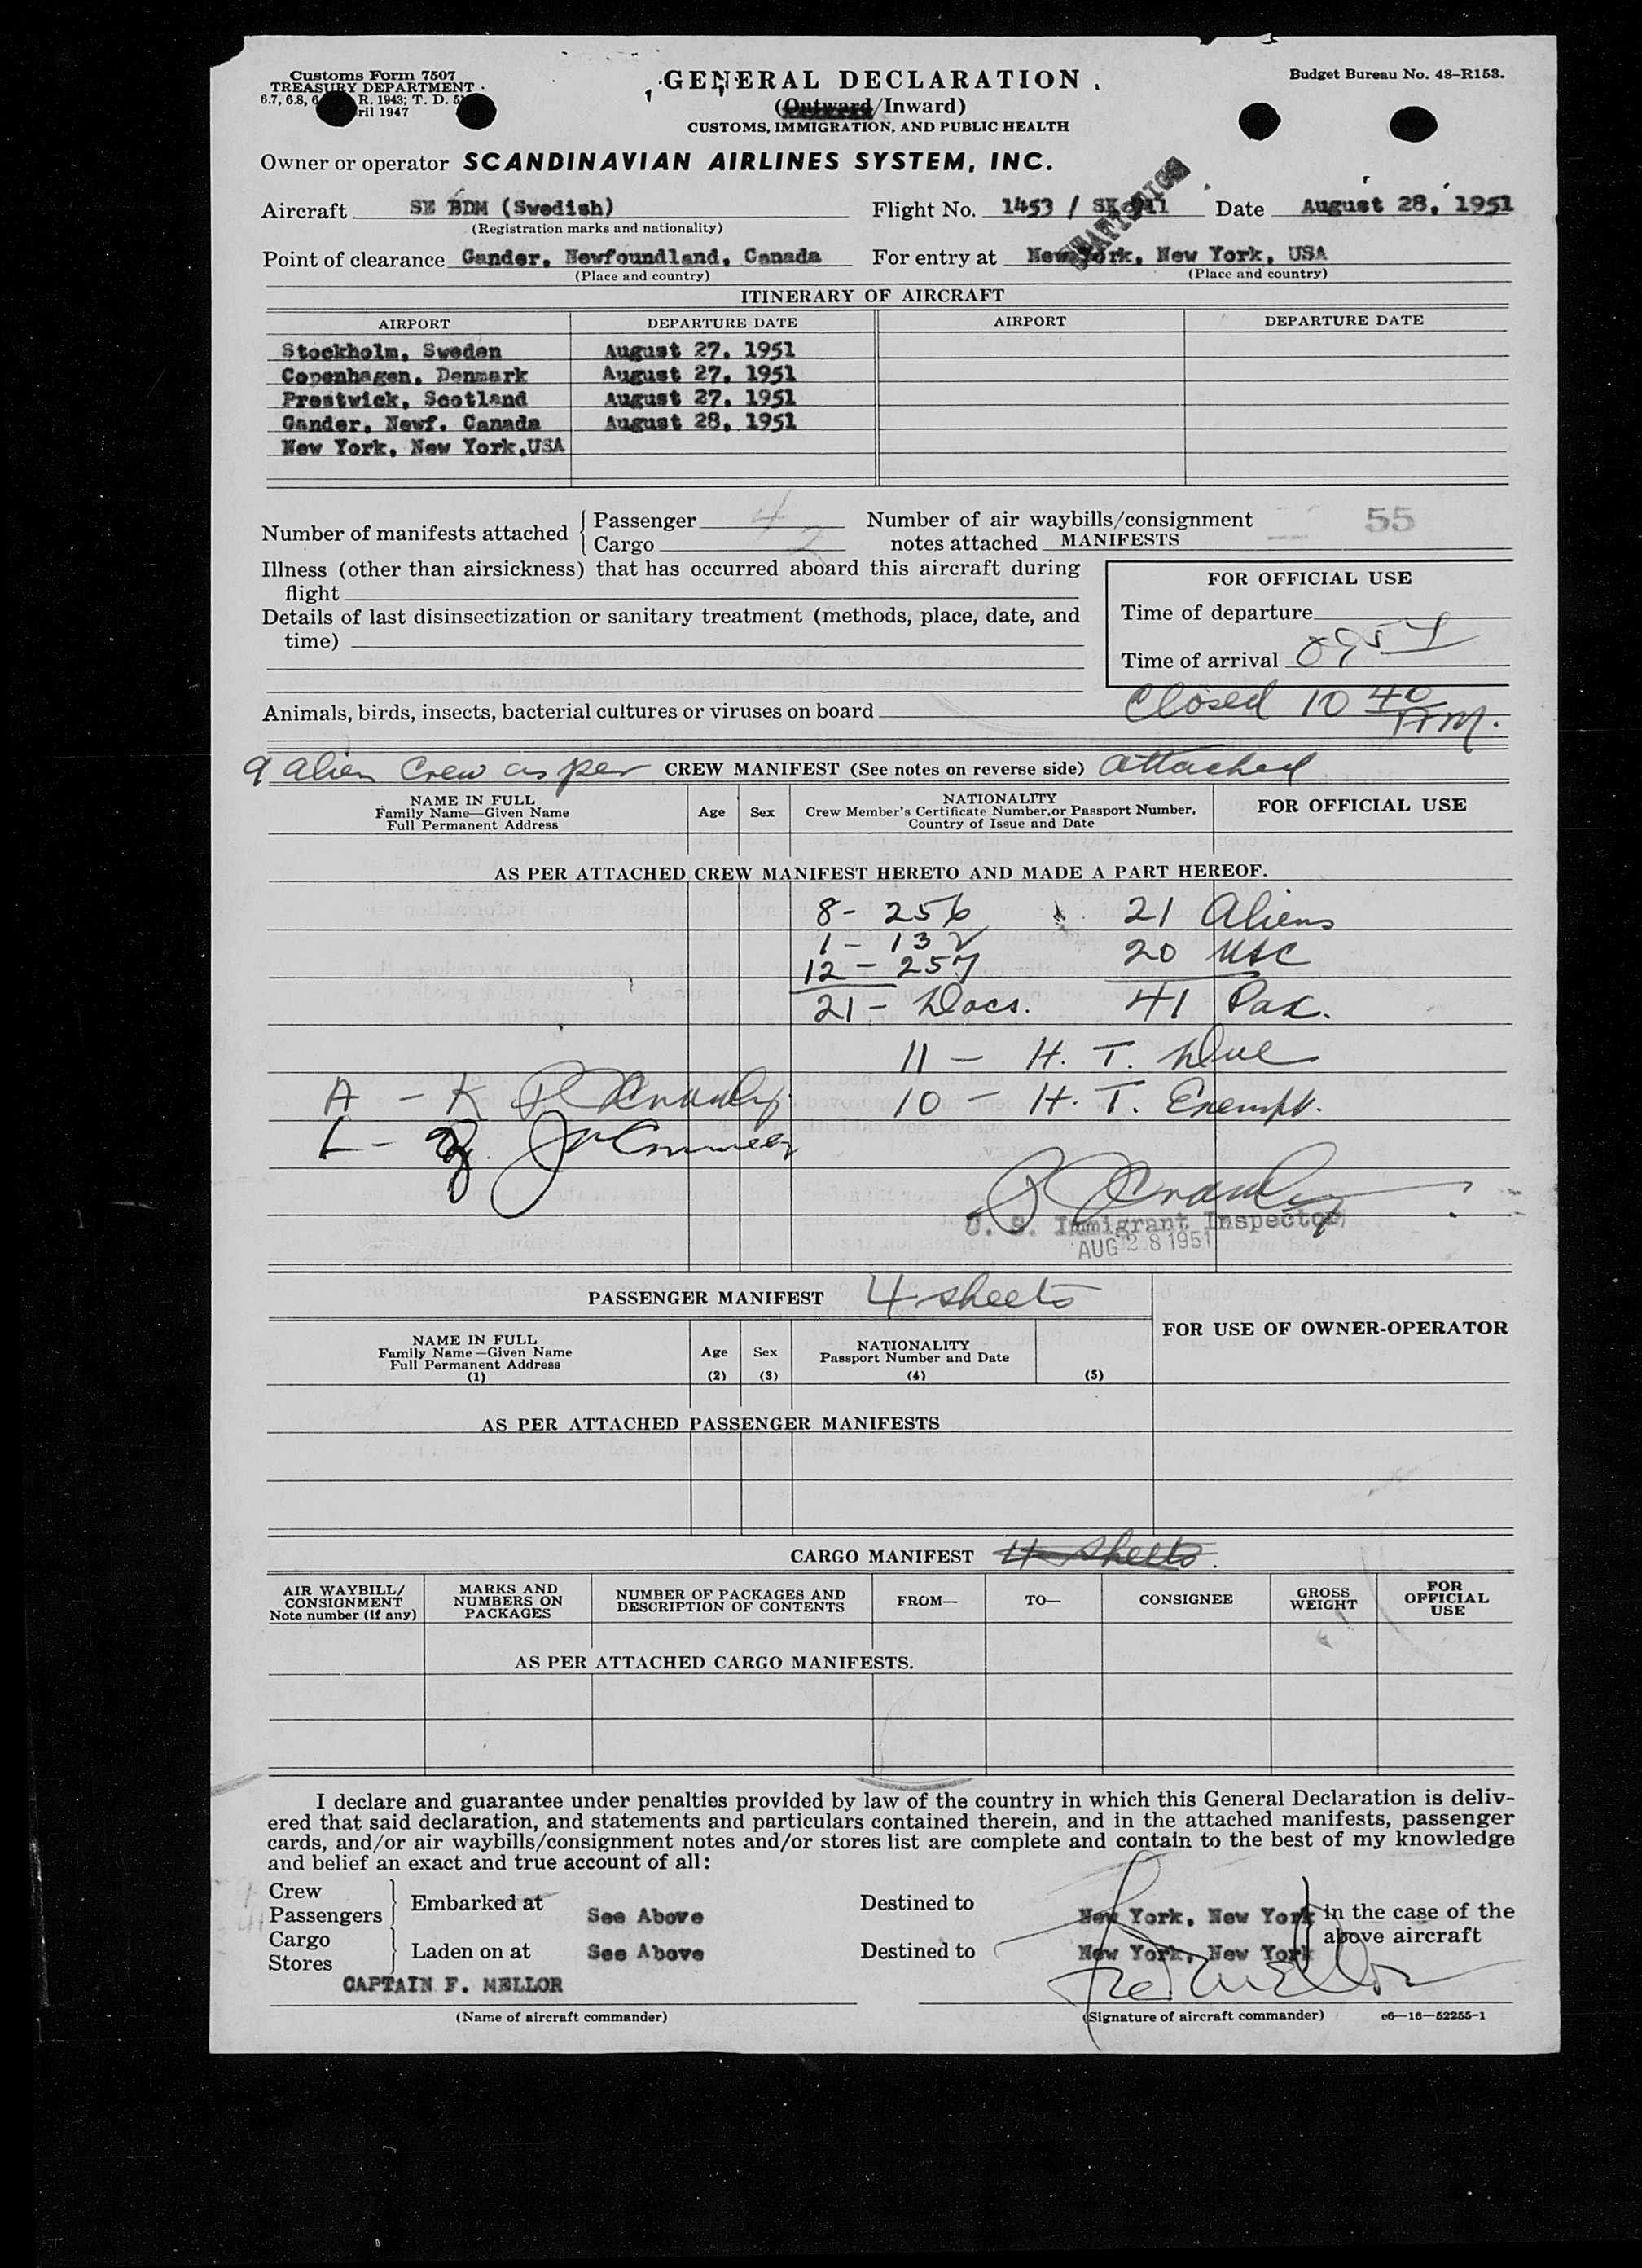 Customs Form 7507
TREASURY DEPARTMENT
6.7, 6.8, R. 1943; T. D.
ril 1947
GENERAL DECLARATION
(Outward/Inward)
CUSTOMS, IMMIGRATION, AND PUBLIC HEALTH
Budget Bureau No. 48-R153.
Owner or operator SCANDINAVIAN AIRLINES SYSTEM, INC.
Aircraft SE BDM (Swedish) Flight No. 1453 / SK 911 Date August 28, 1951
(Registration marks and nationality)
Point of clearance Gander, Newfoundland, Canada For entry at New York, New York, USA
(Place and country) (Place and country)
ITINERARY OF AIRCRAFT
AIRPORT DEPARTURE DATE AIRPORT DEPARTURE DATE
Stockholm, Sweden August 27, 1951
Copenhagen, Denmark August 27, 1951
Prestwick, Scotland August 27, 1951
Gander, Newf. Canada August 28, 1951
New York, New York,USA
Number of manifests attached Passenger 4 Number of air waybills/consignment 55
Cargo 2 notes attached MANIFESTS
Illness (other than airsickness) that has occurred aboard this aircraft during
flight
Details of last disinsectization or sanitary treatment (methods, place, date, and
time)
FOR OFFICIAL USE
Time of departure
Time of arrival
Closed 10 40 AM.
Animals, birds, insects, bacterial cultures or viruses on board
9 alien crew as per CREW MANIFEST (See notes on reverse side) attached
NAME IN FULL
Family Name—Given Name
Full Permanent Address
Age Sex
NATIONALITY
Crew Member's Certificate Number,or Passport Number,
Country of Issue and Date
FOR OFFICIAL USE
AS PER ATTACHED CREW MANIFEST HERETO AND MADE A PART HEREOF.
8 - 256 21 Aliens
1 - 132 20 USC
12 - 257
21 - Docs. 41 Pax.
11 - H. T. Due
A - K 10 - H. T. Exempt.
L - Z
U. S. Immigrant Inspector
AUG 28 1951
PASSENGER MANIFEST 4 sheets
FOR USE OF OWNER-OPERATOR
NAME IN FULL
Family Name—Given Name
Full Permanent Address
(1)
Age
(2)
Sex
(3)
NATIONALITY
Passport Number and Date
(4) (5)
AS PER ATTACHED PASSENGER MANIFESTS
CARGO MANIFEST 4 sheets.
AIR WAYBILL/
CONSIGNMENT
Note number (if any)
MARKS AND
NUMBERS ON
PACKAGES
NUMBER OF PACKAGES AND
DESCRIPTION OF CONTENTS
FROM— TO— CONSIGNEE
GROSS
WEIGHT
FOR
OFFICIAL
USE
AS PER ATTACHED CARGO MANIFESTS.
I declare and guarantee under penalties provided by law of the country in which this General Declaration is deliv-
ered that said declaration, and statements and particulars contained therein, and in the attached manifests, passenger
cards, and/or air waybills/consignment notes and/or stores list are complete and contain to the best of my knowledge
and belief an exact and true account of all:
Crew
Passengers Embarked at See Above Destined to New York, New York in the case of the
Cargo above aircraft
Stores Laden on at See Above Destined to New York, New York
CAPTAIN F. MELLOR Fred Mellor
(Name of aircraft commander) (Signature of aircraft commander) c6—16—52255-1